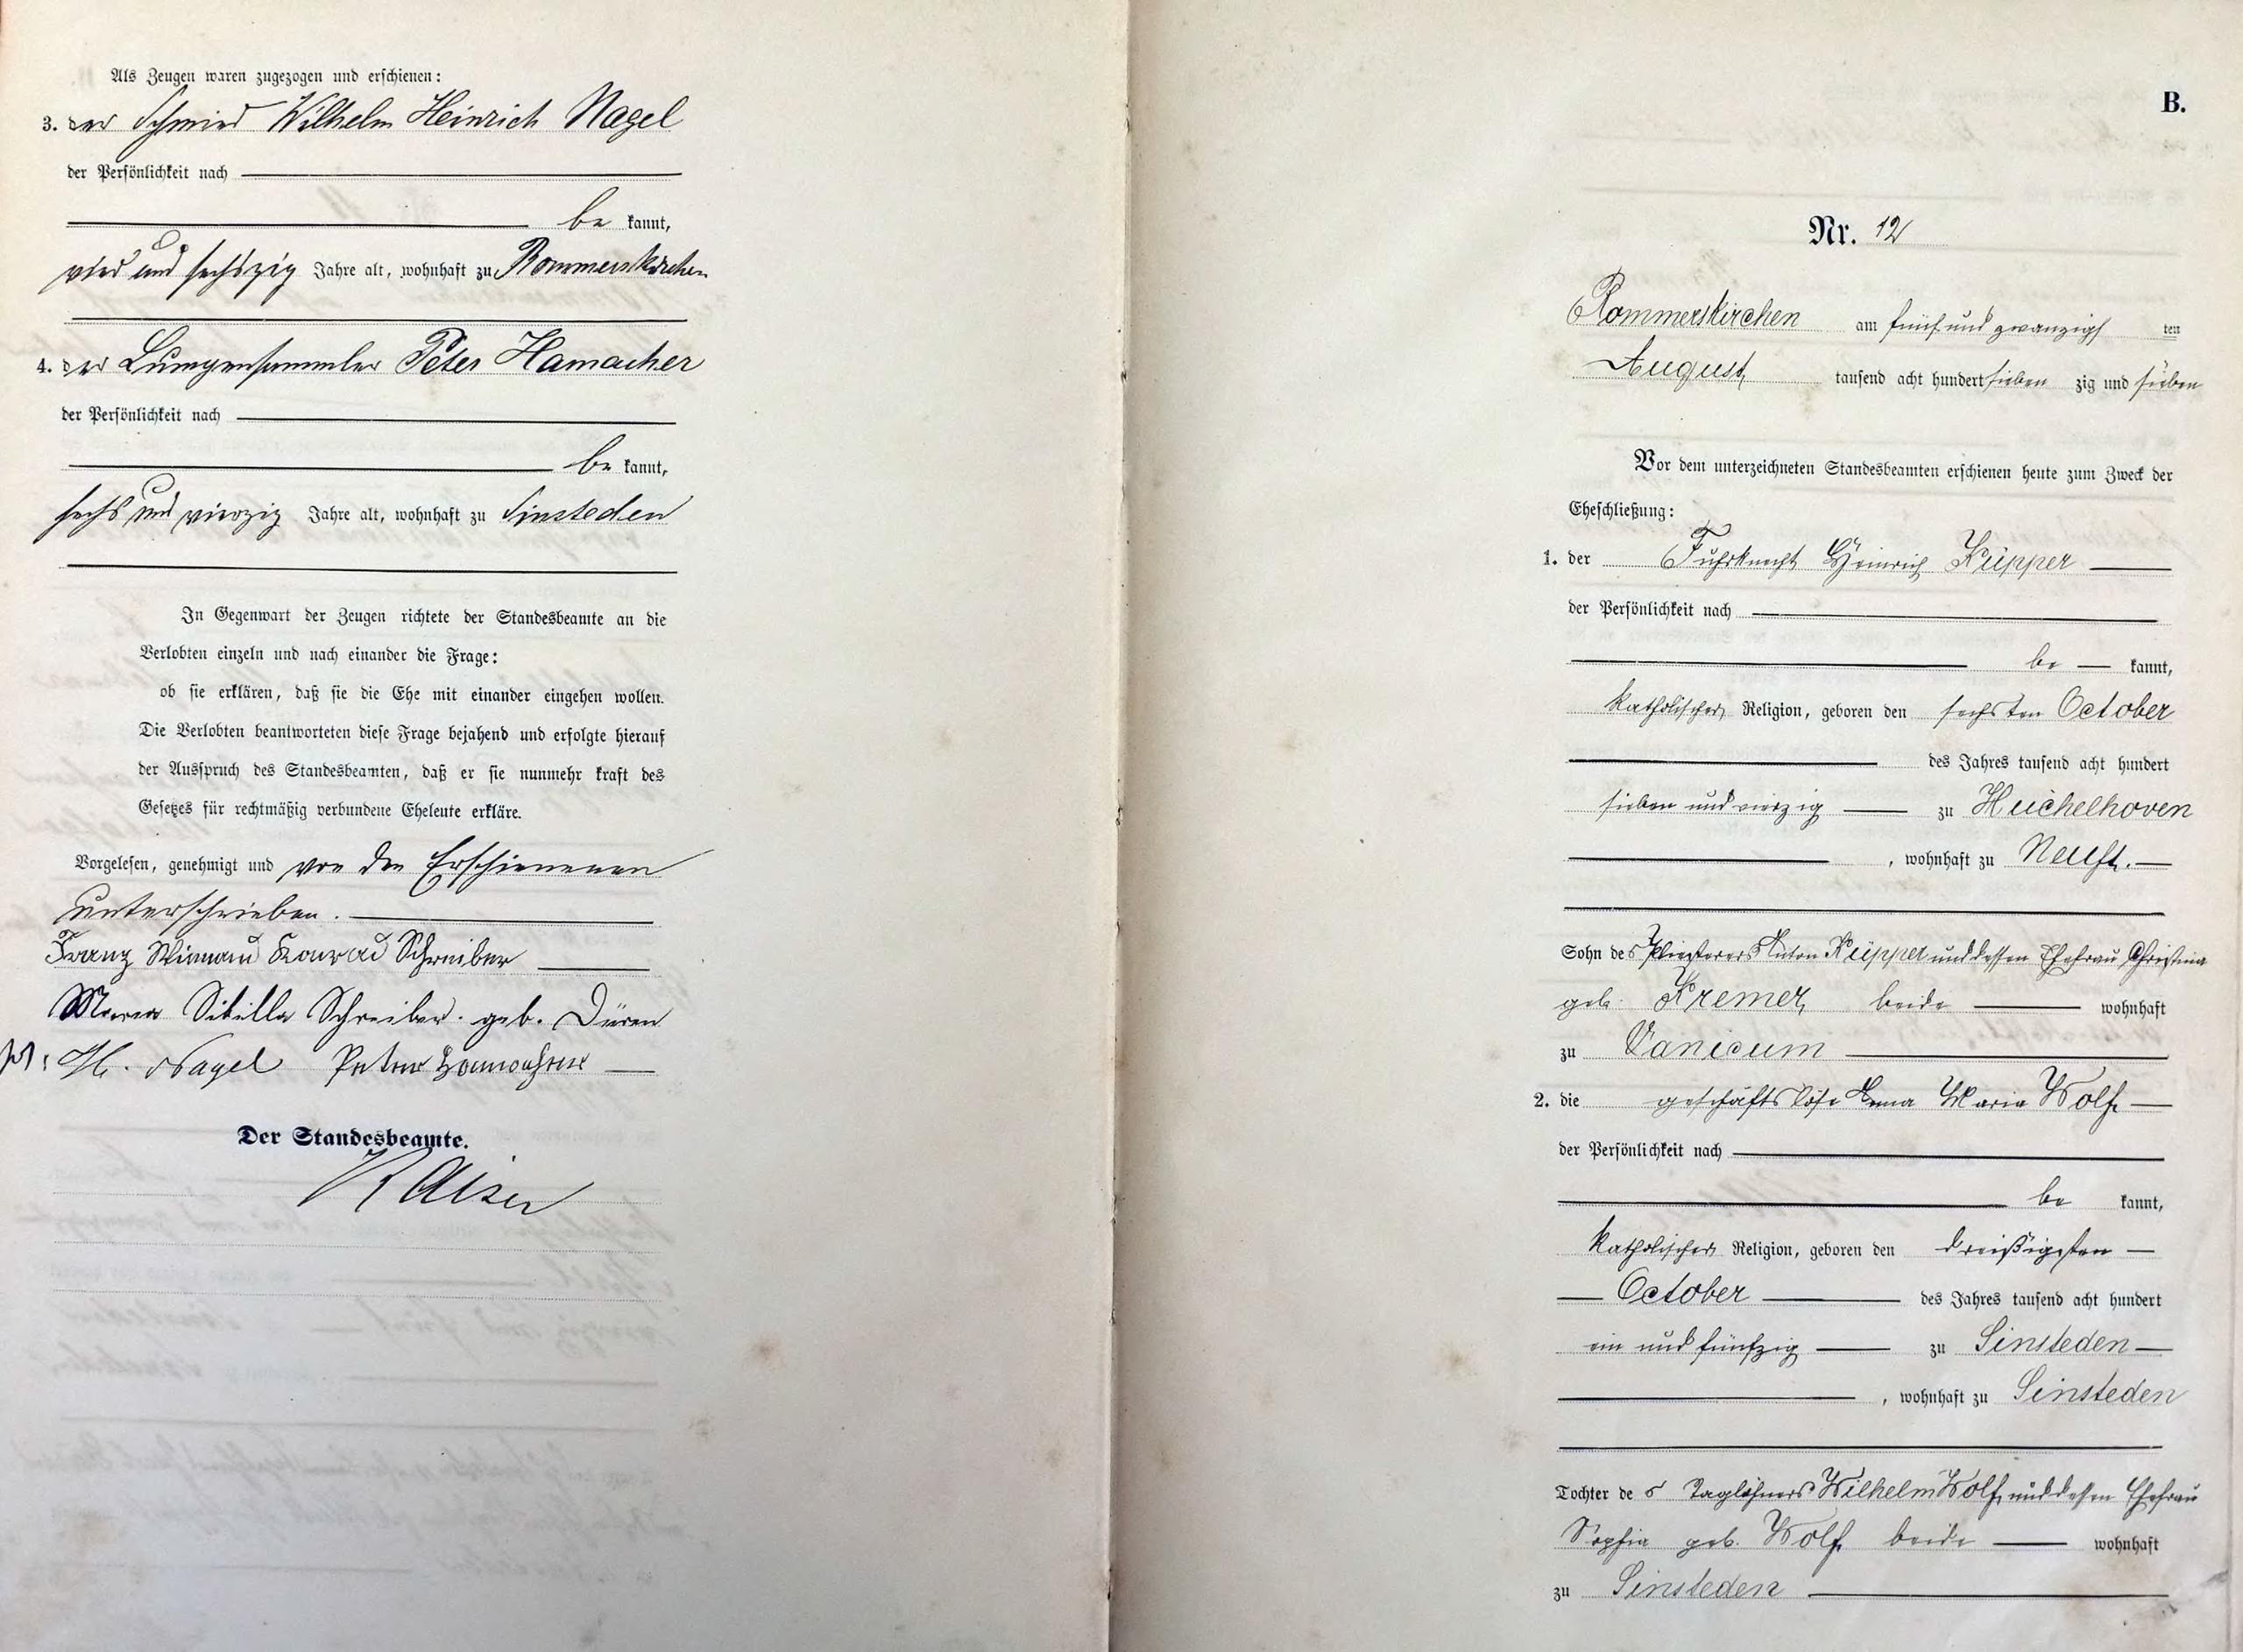 Als Zeugen waren zugezogen und erschienen:
3. der Schmied Wilhelm Heinrich Nagel
der Persönlichkeit nach
be kannt,
vier und sechszig Jahre alt, wohnhaft zu Rommerskirchen
4. der Lumpensammler Peter Hamacher
der Persönlichkeit nach
be kannt,
sechs und vierzig Jahre alt, wohnhaft zu Sinsteden
In Gegenwart der Zeugen richtete der Standesbeamte an die
Verlobten einzeln und nach einander die Frage:
ob sie erklären, daß sie die Ehe mit einander eingehen wollen.
Die Verlobten beantworteten diese Frage bejahend und erfolgte hierauf
der Ausspruch des Standesbeamten, daß er sie nunmehr kraft des
Gesetzes für rechtmäßig verbundene Eheleute erkläre.
Vorgelesen, genehmigt und von den Erschienenen
unterschrieben.
Franz Konrad Schreiber
Maria Sibilla Schreiber geb. Düren
W. H. Nagel Peter Hamacher
Der Standesbeamte.
Kaiser
B.
Nr. 12
Rommerskirchen am fünf und zwanzigs ten
August tausend acht hundert sieben zig und sieben
Vor dem unterzeichneten Standesbeamten erschienen heute zum Zweck der
Eheschließung:
1. der Fuhrknecht Heinrich Küpper
der Persönlichkeit nach
be kannt,
katholischer Religion, geboren den sechsten October
des Jahres tausend acht hundert
sieben und vierzig zu Hüchelhoven
, wohnhaft zu Neuß.
Sohn des Pliesterers Anton Küpper und dessen Ehefrau Christina
geb. Kremer beide wohnhaft
zu Vanicum
2. die geschäftslose Anna Maria Wolf
der Persönlichkeit nach
be kannt,
katholischer Religion, geboren den dreißigsten
October des Jahres tausend acht hundert
ein und fünfzig zu Sinsteden
, wohnhaft zu Sinsteden
Tochter des Taglöhners Wilhelm Wolf und dessen Ehefrau
Sophia geb. Wolf beide wohnhaft
zu Sinsteden